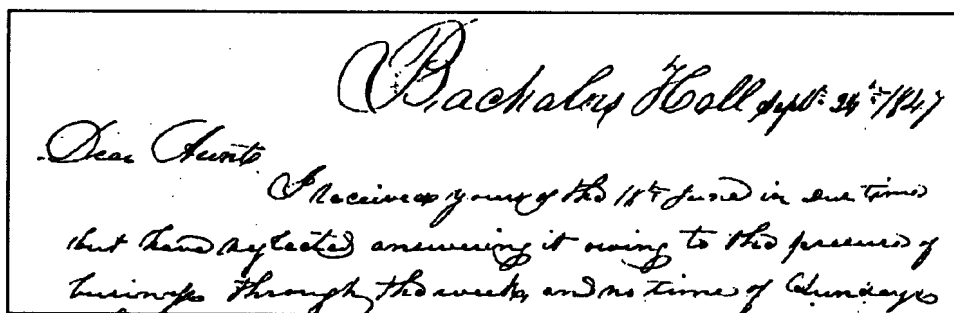 Bachalors Hall Sept. 26th 1847
Dear Aunt
I received yours of the 18th June in due time
but have neglected answering it owing to the pressure of
business through the week, and no time of Sundays